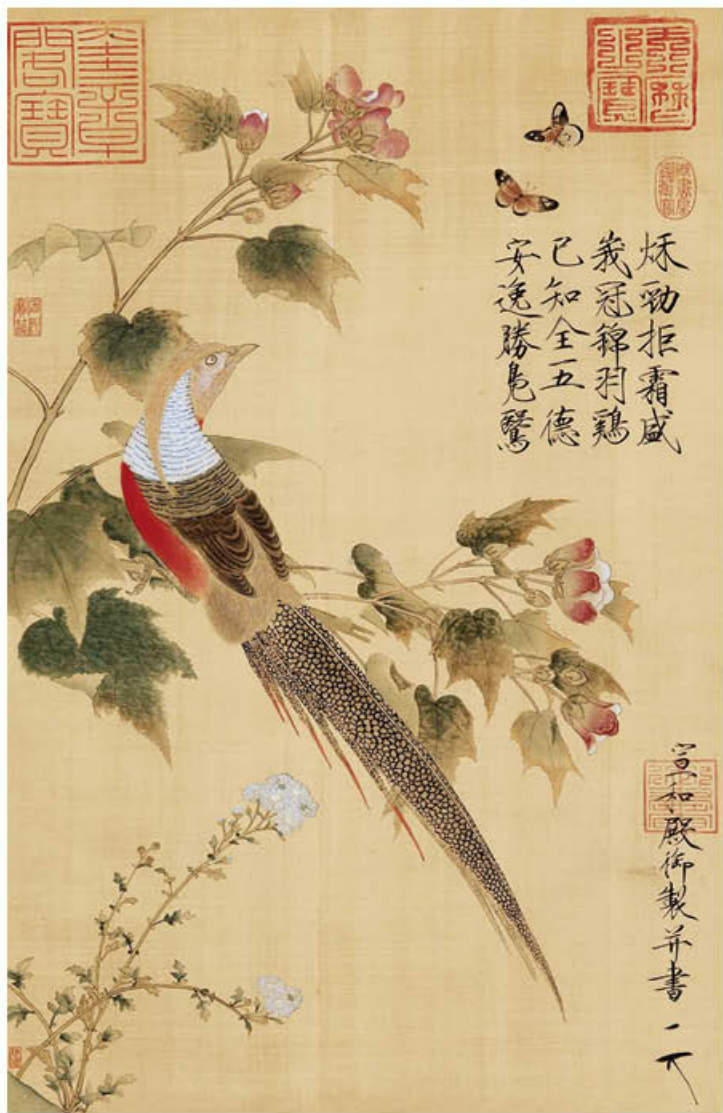 秌勁拒霜盛
峩冠錦羽鷄
已知全五德
安逸勝鳧鷖
宣和殿御製并書
奎章閣寶